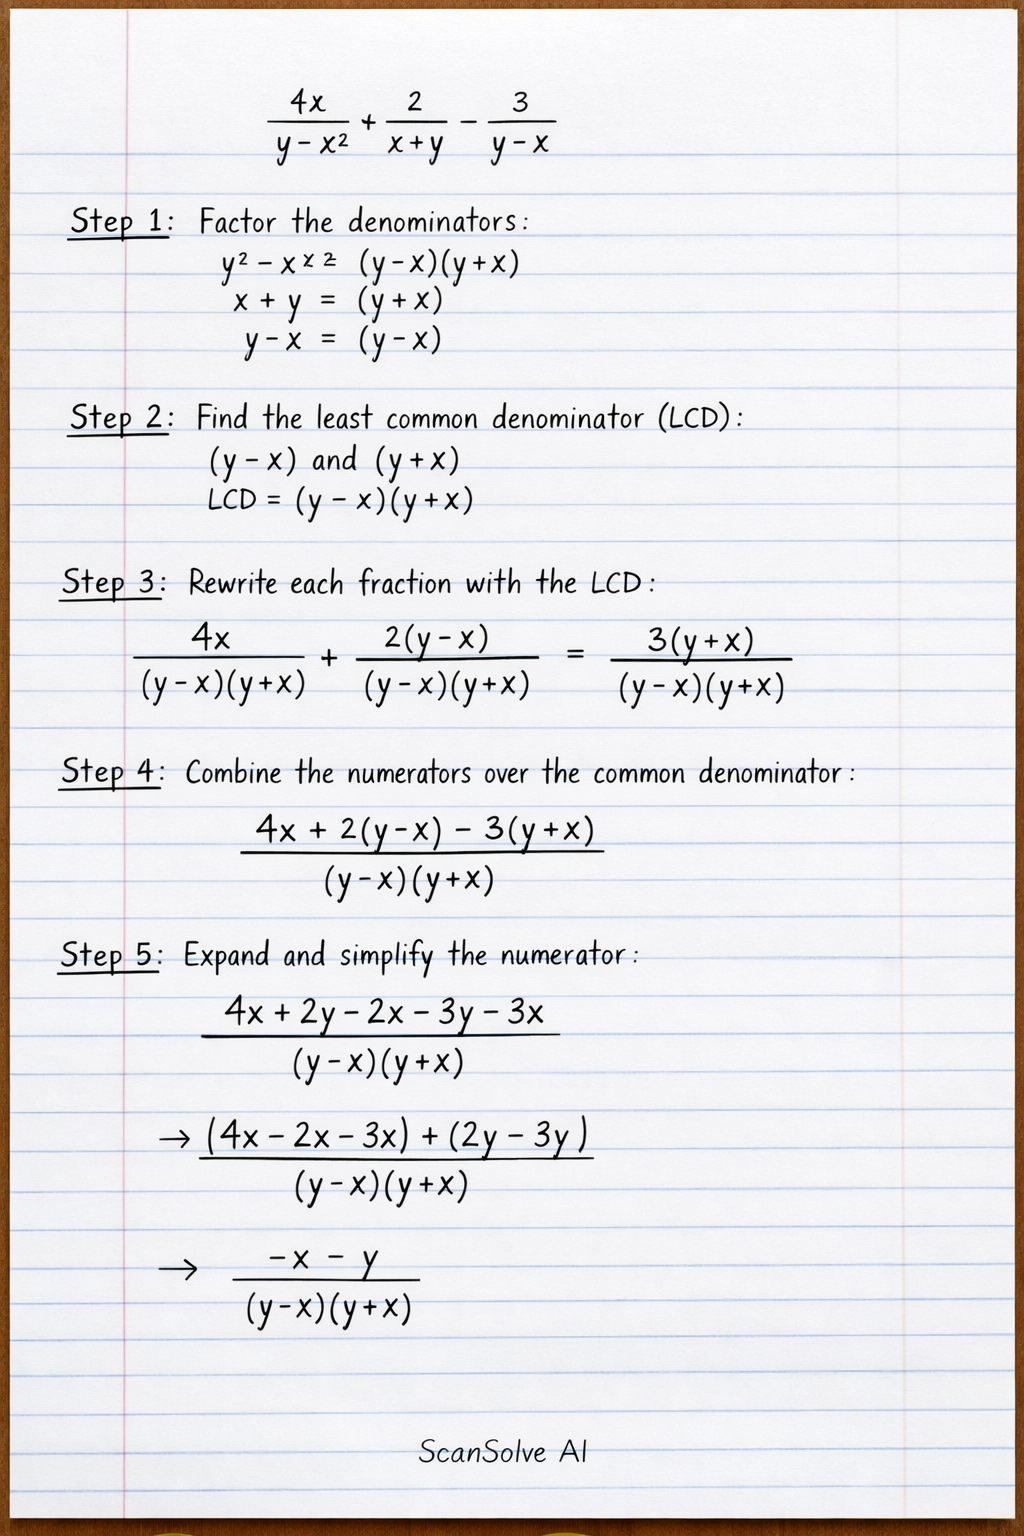 4x/(y - x²) + 2/(x + y) - 3/(y - x)
Step 1: Factor the denominators:
y² - x ˣ ² (y - x)(y + x)
x + y = (y + x)
y - x = (y - x)
Step 2: Find the least common denominator (LCD):
(y - x) and (y + x)
LCD = (y - x)(y + x)
Step 3: Rewrite each fraction with the LCD:
4x/((y - x)(y + x)) + 2(y - x)/((y - x)(y + x)) = 3(y + x)/((y - x)(y + x))
Step 4: Combine the numerators over the common denominator:
4x + 2(y - x) - 3(y + x)
(y - x)(y + x)
Step 5: Expand and simplify the numerator:
4x + 2y - 2x - 3y - 3x
(y - x)(y + x)
→ (4x - 2x - 3x) + (2y - 3y)
(y - x)(y + x)
→ -x - y
(y - x)(y + x)
ScanSolve AI